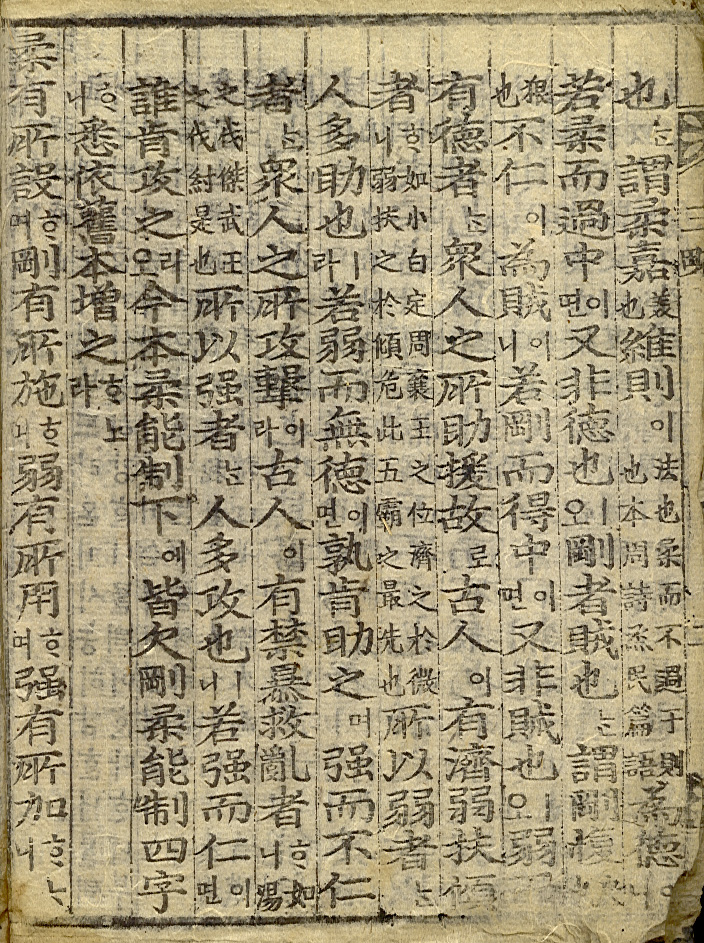 也ᄂᆞᆫ謂柔嘉美也維則이法也柔而不過于則也本周詩烝民篇語為德
若柔而過中이면又非德也ㅣ오剛者賊也ᄂᆞᆫ謂剛愎
狠也不仁이為賊이니若剛而得中이면又非賊也ㅣ오弱
有德者ᄂᆞᆫ衆人之所助援故로古人이有濟弱扶傾
者ᄒᆞ니如小白定周襄王之位濟之於微弱扶之於傾危此五霸之最先也所以弱者ᄂᆞᆫ
人多助也ㅣ라若弱而無德이면孰肯助之며强而不仁
者ᄂᆞᆫ衆人之所攻擊이라古人이有禁暴救亂者ᄒᆞ니如湯
之伐傑武王之伐紂是也所以强者ᄂᆞᆫ人多攻也ㅣ니若强而仁이면
誰肯攻之리오今本柔能制下에皆欠剛柔能制四字
ᄒᆞ니悉依舊本增之ᄒᆞ노라
柔有所設ᄒᆞ며剛有所施ᄒᆞ니弱有所用ᄒᆞ며强有所加ᄒᆞᄂᆞ니